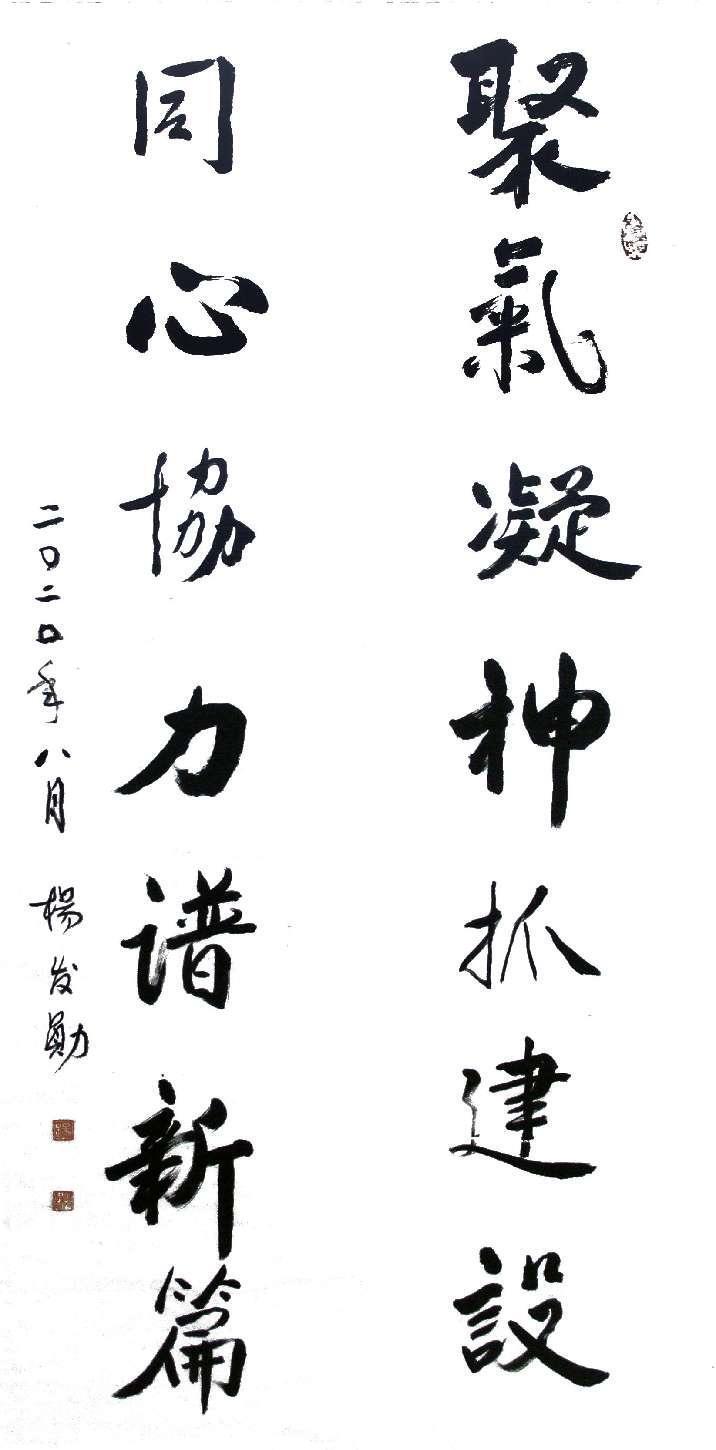 聚氣凝神抓建設
同心協力谱新篇
二〇二〇年八月 楊发勳